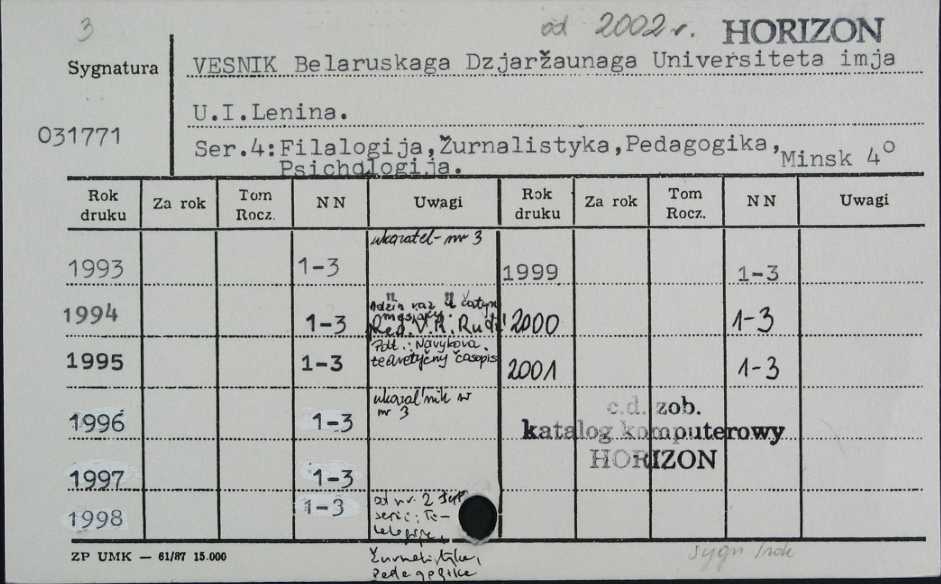 3 od 2002 r. HORIZON
Sygnatura VESNIK Belaruskaga Dzjaržaunaga Universiteta imja
U.I.Lenina.
031771
Ser.4:Filalogija,Žurnalistyka,Pedagogika, Minsk 4°
Psichalogija.
Rok druku Za rok Tom Rocz. NN Uwagi Rok druku Za rok Tom Rocz. NN Uwagi
ukazatel- nr 3
1993 1-3 1999 1-3
raz
1994 1-3 Red. V.R. 2000 1-3
Navykova.
1995 1-3 teoretyčny časopis 2001 1-3
w
1996 1-3 nr 3 c.d. zob.
katalog komputerowy
1997 1-3 HORIZON
od nr. 2
1998 1-3
ZP UMK — 61/87 15.000
Žurnalistyka,
Pedagogika